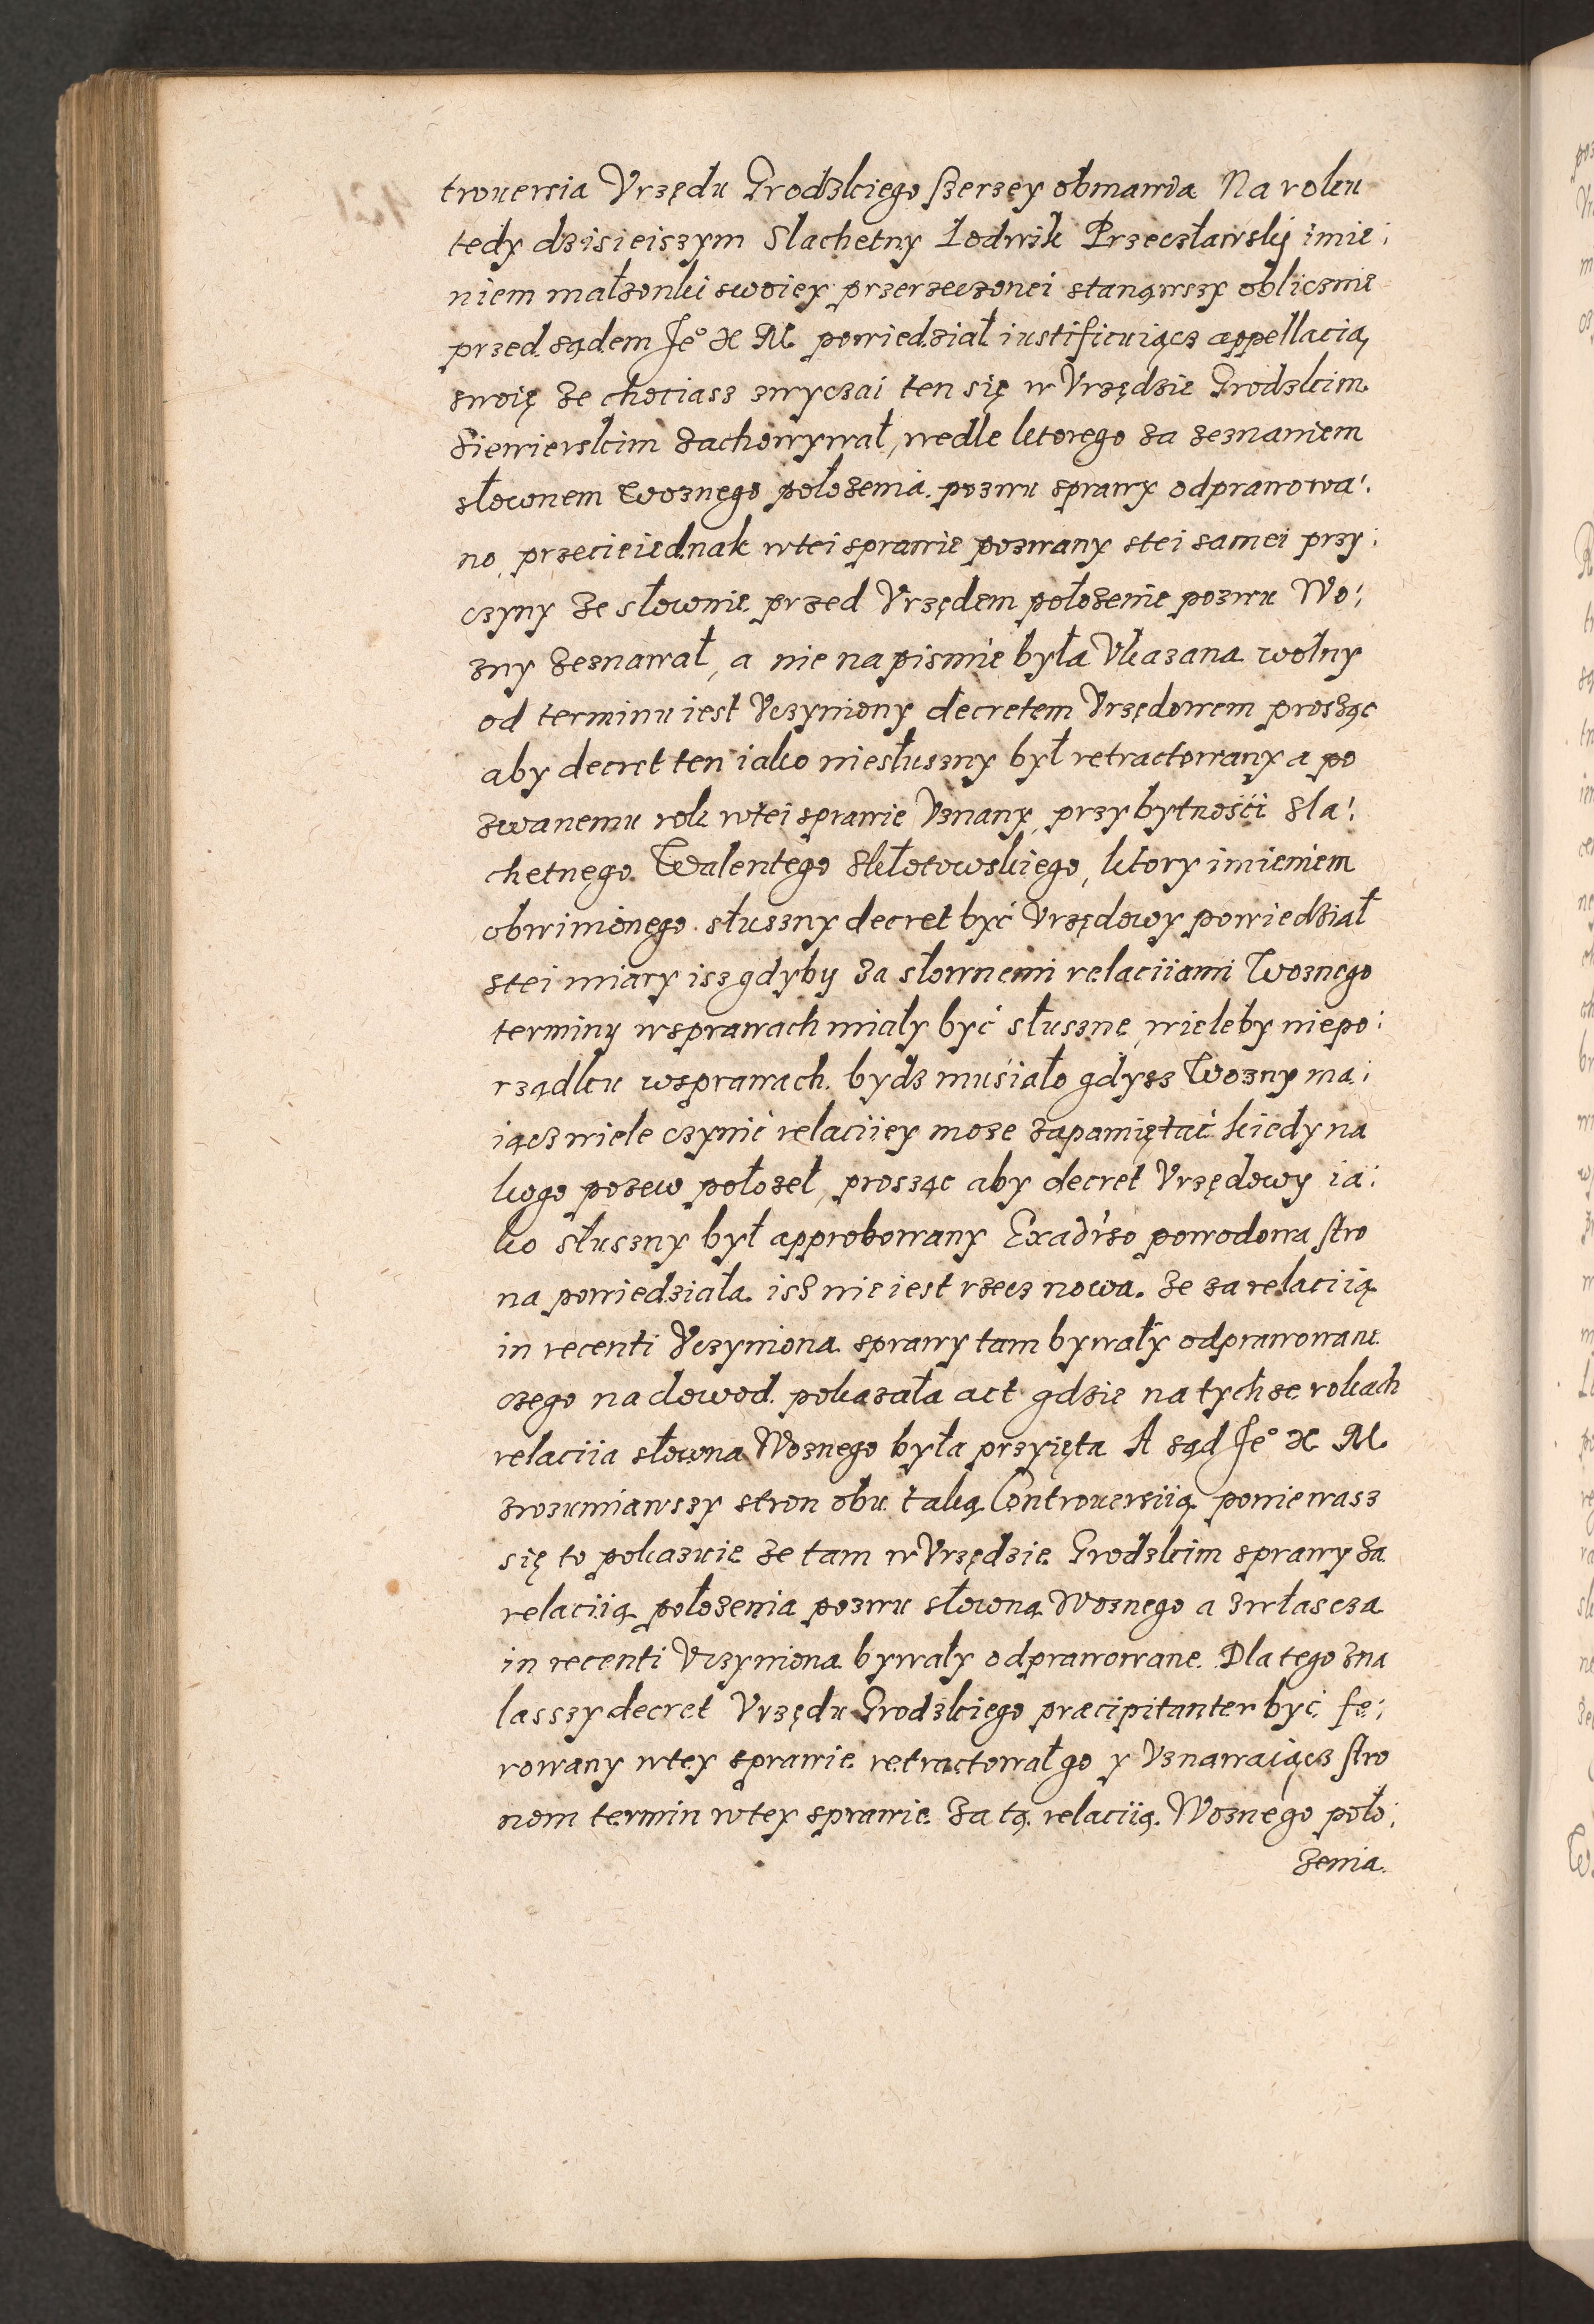 trouersia Vrzędu Grodzkiego szerzey obmawia Na roku
tedy dzisieiszym Slachetny Lodwik Przeczławskij imie:
niem małzonki swoiey przerzeczonei stanąwszy obliczni̇e
przed sądem Je° X M powiedział iustificuiącz appellacią
swoię ze chociasz zwyczai ten się w Vrzędzie Grodzkim
Siewierskim zachowywał, wedle ktorego za zeznaniem
słownem Woznego położenia pozwu sprawy odprawowa:
no, przecieiednak wtei sprawie pozwany stei samei przy:
czyny ze słownie przed Vrzędem położenie pozwu Wo:
zny zeznawał, a nie na pismie była Vkazana wolny
od terminu iest Vczyniony decretem Vrzędowem prosząc
aby decret ten iako niesłuszny był retractowany a po
zwanemu rok wtei sprawie Vznany, przy bytności Sla:
chetnego Walentego Skłotowskiego, ktory imieniem
obwinionego słuszny decret być Vrzędowy powiedział
stei miary isz gdyby za słownemi relaciiami Woznego
terminy wsprawach miały być słuszne, wieleby niepo:
rządku wsprawach bydz musiało gdysz Wozny ma:
iącz wiele czynić relaciiey moze zapamiętać kiedy na
kogo pozew położeł, prosząc aby decret Vrzędowy ia:
ko słuszny był approbowany Exadrso powodowa stro
na powiedziała isz nie iest rzecz nowa. ze za relaciią
in recenti Vczyniona sprawy tam bywały odprawowane
czego na dowod pokazała act gdzie na tychze rokach
relaciia słowna Woznego była przyięta A sąd Je° X M
zrozumiawszy stron obu taką Controuersiią poniewasz
się to pokazuie ze tam w Vrzędzie Grodzkim sprawy za
relaciią położenia pozwu słowną Woznego a zwłascza
in recenti Vczyniona bywały odprawowane. Dla tego zna
lasszy decret Vrzędu Grodzkiego præcipitanter być fe:
rowany wtey sprawie retractował go y Vznawaiącz stro
nom termin wtey sprawie za tą relaciią Woznego poło:
zenia.